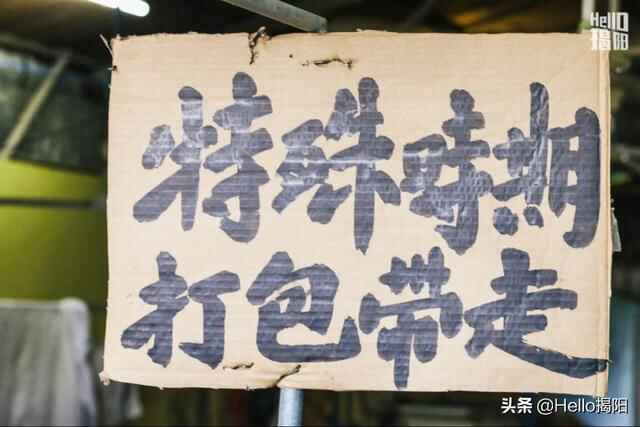 Hello
揭阳
特殊时期
打包带走
头条 @Hello揭阳